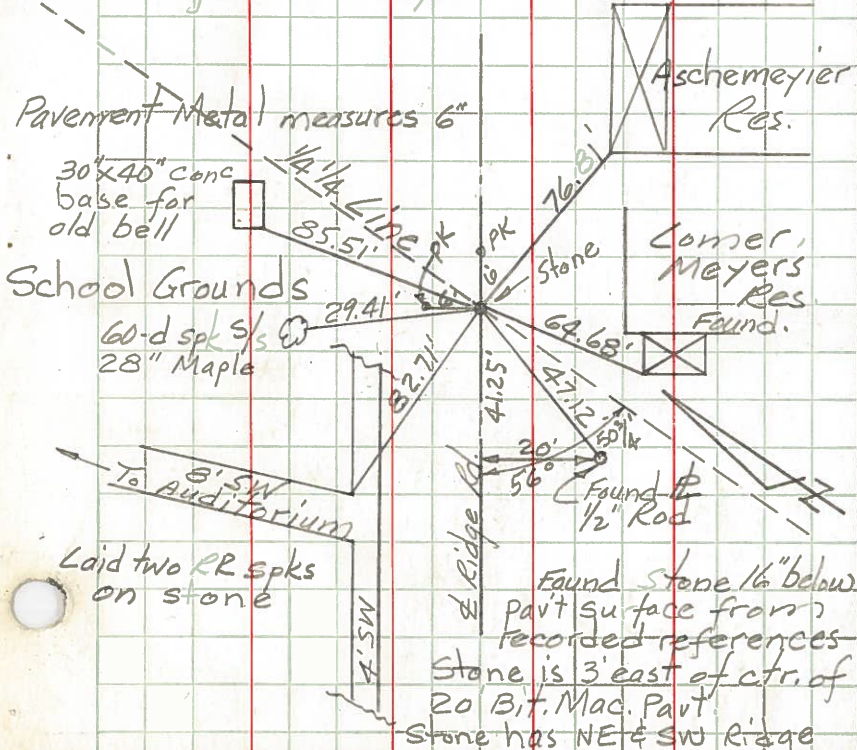 Aschemeyier
Res.
Pavement Metal measures 6"
30"x40" conc
base for
old bell
1/4 1/4 Line
85.51'
PK
PK
6'
76.81'
Stone
Comer,
Meyers
Res
Found.
School Grounds
29.41'
60-d spk S/s
28" Maple
64.68'
82.71'
41.25'
47.12'
20'
56°
50 3/4
8' SW
To Auditorium
Found
1/2" Rod
N
Laid two RR spks
on stone
4' SW
℄ Ridge Rd.
Found Stone 16" below
pav't su face from
recorded references
Stone is 3' east of ctr. of
20 Bit. Mac. Pav't
Stone has NE & SW Ridge